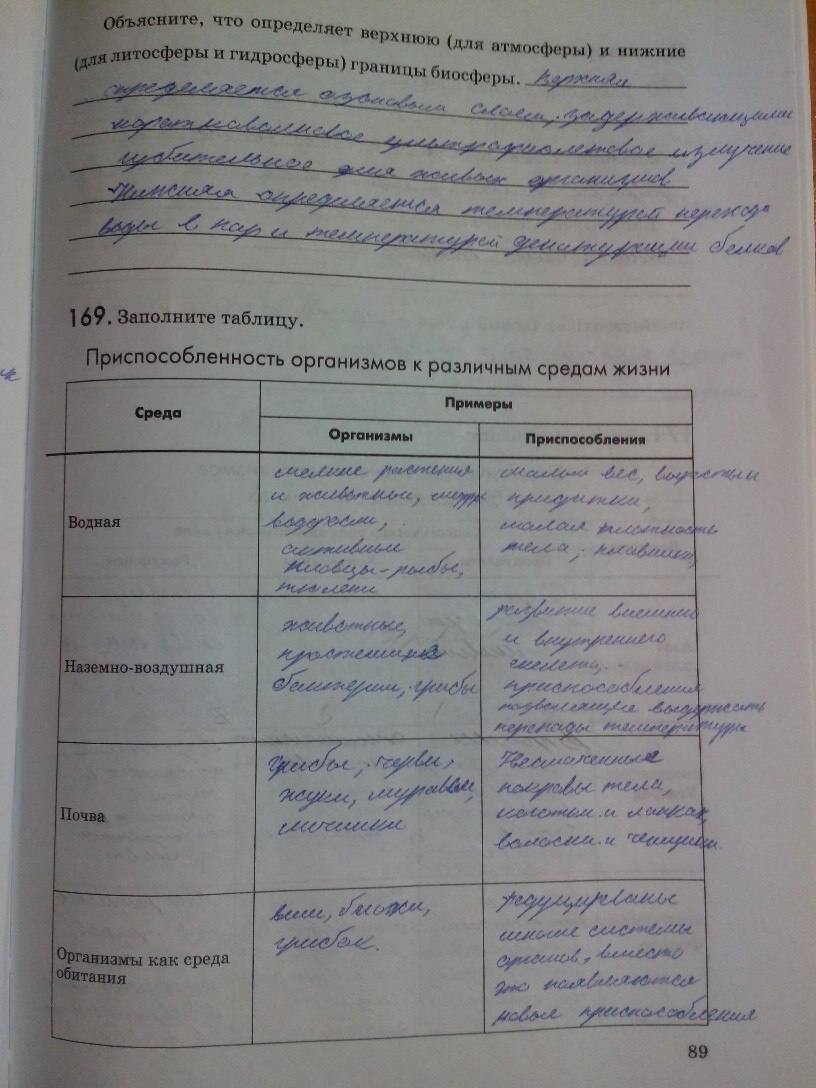 Объясните, что определяет верхнюю (для атмосферы) и нижние
(для литосферы и гидросферы) границы биосферы. Верхняя
определяется озоновым слоем, задерживающими
коротковолновое ультрафиолетовое излучение
губительное для живых организмов
Нижняя определяется температурой перехода
воды в пар и температурой денатурации белков
169. Заполните таблицу.
Приспособленность организмов к различным средам жизни
Среда
Примеры
Организмы
Приспособления
Водная
мелкие растения
и животные,
водоросли,
активные
пловцы-рыбы,
тюлени
малый вес, выросты и
придатки,
малая плотность
тела, плавники,
Наземно-воздушная
животные,
простейшие
бактерии, грибы
развитие внешнего
и внутреннего
скелета,
приспособления
позволяющие выдержать
перепады температуры
Почва
грибы, черви,
жуки, муравьи,
личинки
покровы тела,
коготки и лапках,
волоски и чешуйки
Организмы как среда
обитания
вши, блохи,
грибок.
Редуцированы
многие системы
органов, вместо
это появляются
новые приспособления
89